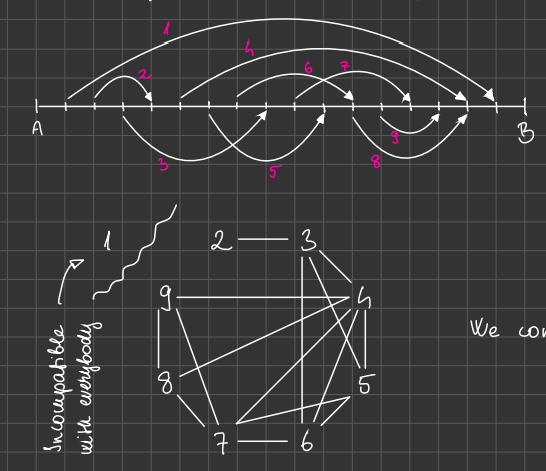 1
4
2
6
7
A
B
3
5
9
8
1
2
3
9
4
We con
8
5
7
6
Incompatible
with everybody